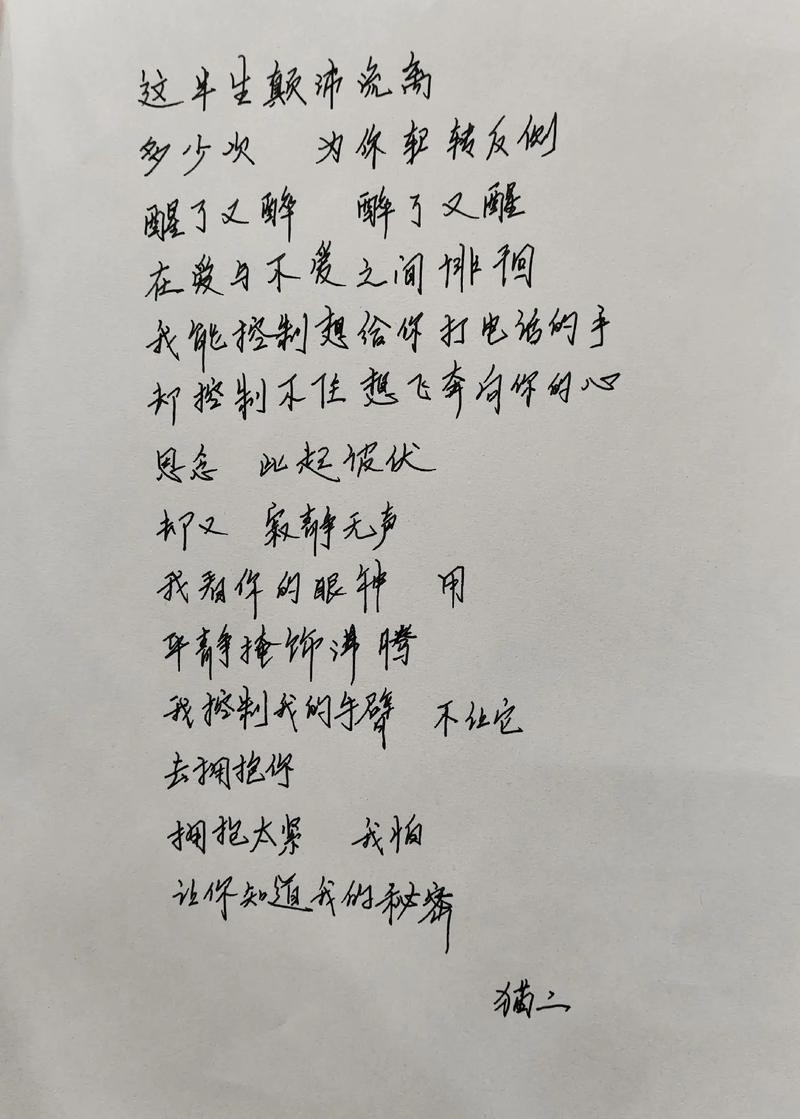 这半生颠沛流离
多少次 为你辗转反侧
醒了又醉 醉了又醒
在爱与不爱之间徘徊
我能控制想给你打电话的手
却控制不住想飞奔向你的心
思念 此起彼伏
却又 寂静无声
我看你的眼神 用
平静掩饰沸腾
我控制我的手臂 不让它
去拥抱你
拥抱太紧 我怕
让你知道我的秘密
猫二